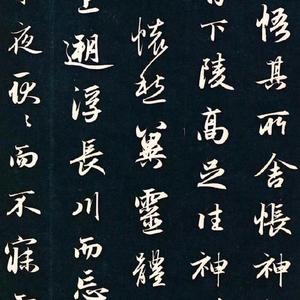 悟其所舍悵神
下陵高足往神
懷愁冀靈體
上遡浮長川而忘
夜耿〻而不寐